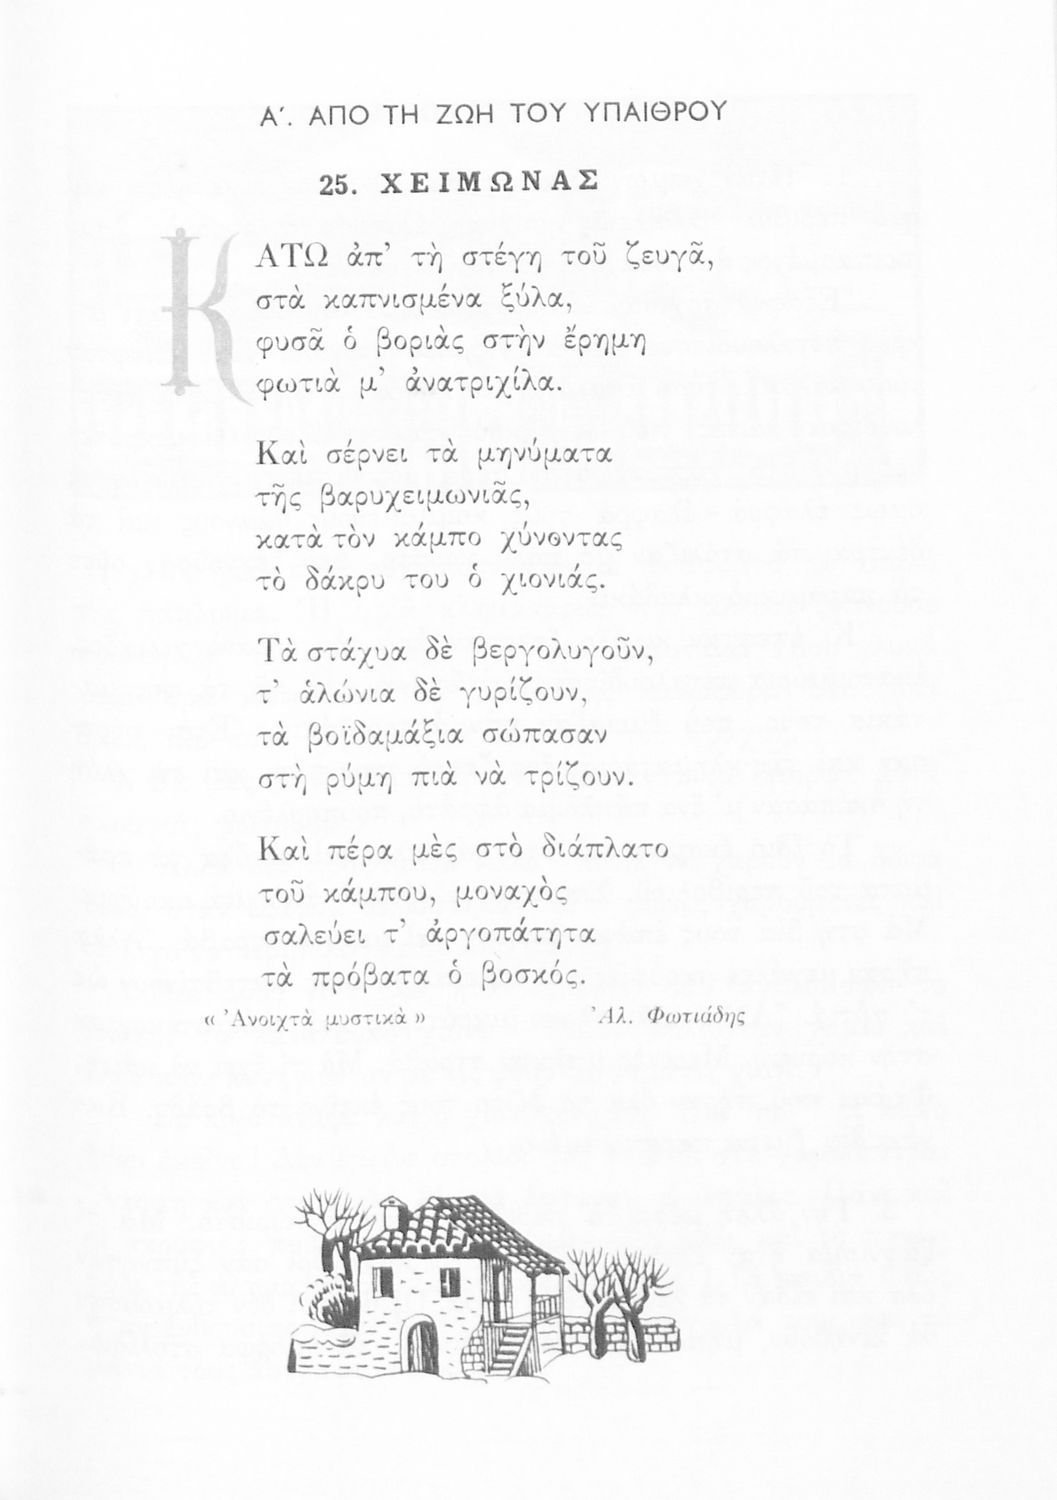 Α΄. ΑΠΟ ΤΗ ΖΩΗ ΤΟΥ ΥΠΑΙΘΡΟΥ
25. ΧΕΙΜΩΝΑΣ
ΚΑΤΩ ἀπ’ τὴ στέγη τοῦ ζευγᾶ,
στὰ καπνισμένα ξύλα,
φυσᾶ ὁ βοριὰς στὴν ἔρημη
φωτιὰ μ’ ἀνατριχίλα.
Καὶ σέρνει τὰ μηνύματα
τῆς βαρυχειμωνιᾶς,
κατὰ τὸν κάμπο χύνοντας
τὸ δάκρυ του ὁ χιονιάς.
Τὰ στάχυα δὲ βεργολυγοῦν,
τ’ ἁλώνια δὲ γυρίζουν,
τὰ βοϊδαμάξια σώπασαν
στὴ ρύμη πιὰ νὰ τρίζουν.
Καὶ πέρα μὲς στὸ διάπλατο
τοῦ κάμπου, μοναχὸς
σαλεύει τ’ ἀργοπάτητα
τὰ πρόβατα ὁ βοσκός.
« Ἀνοιχτὰ μυστικὰ » Ἀλ. Φωτιάδης